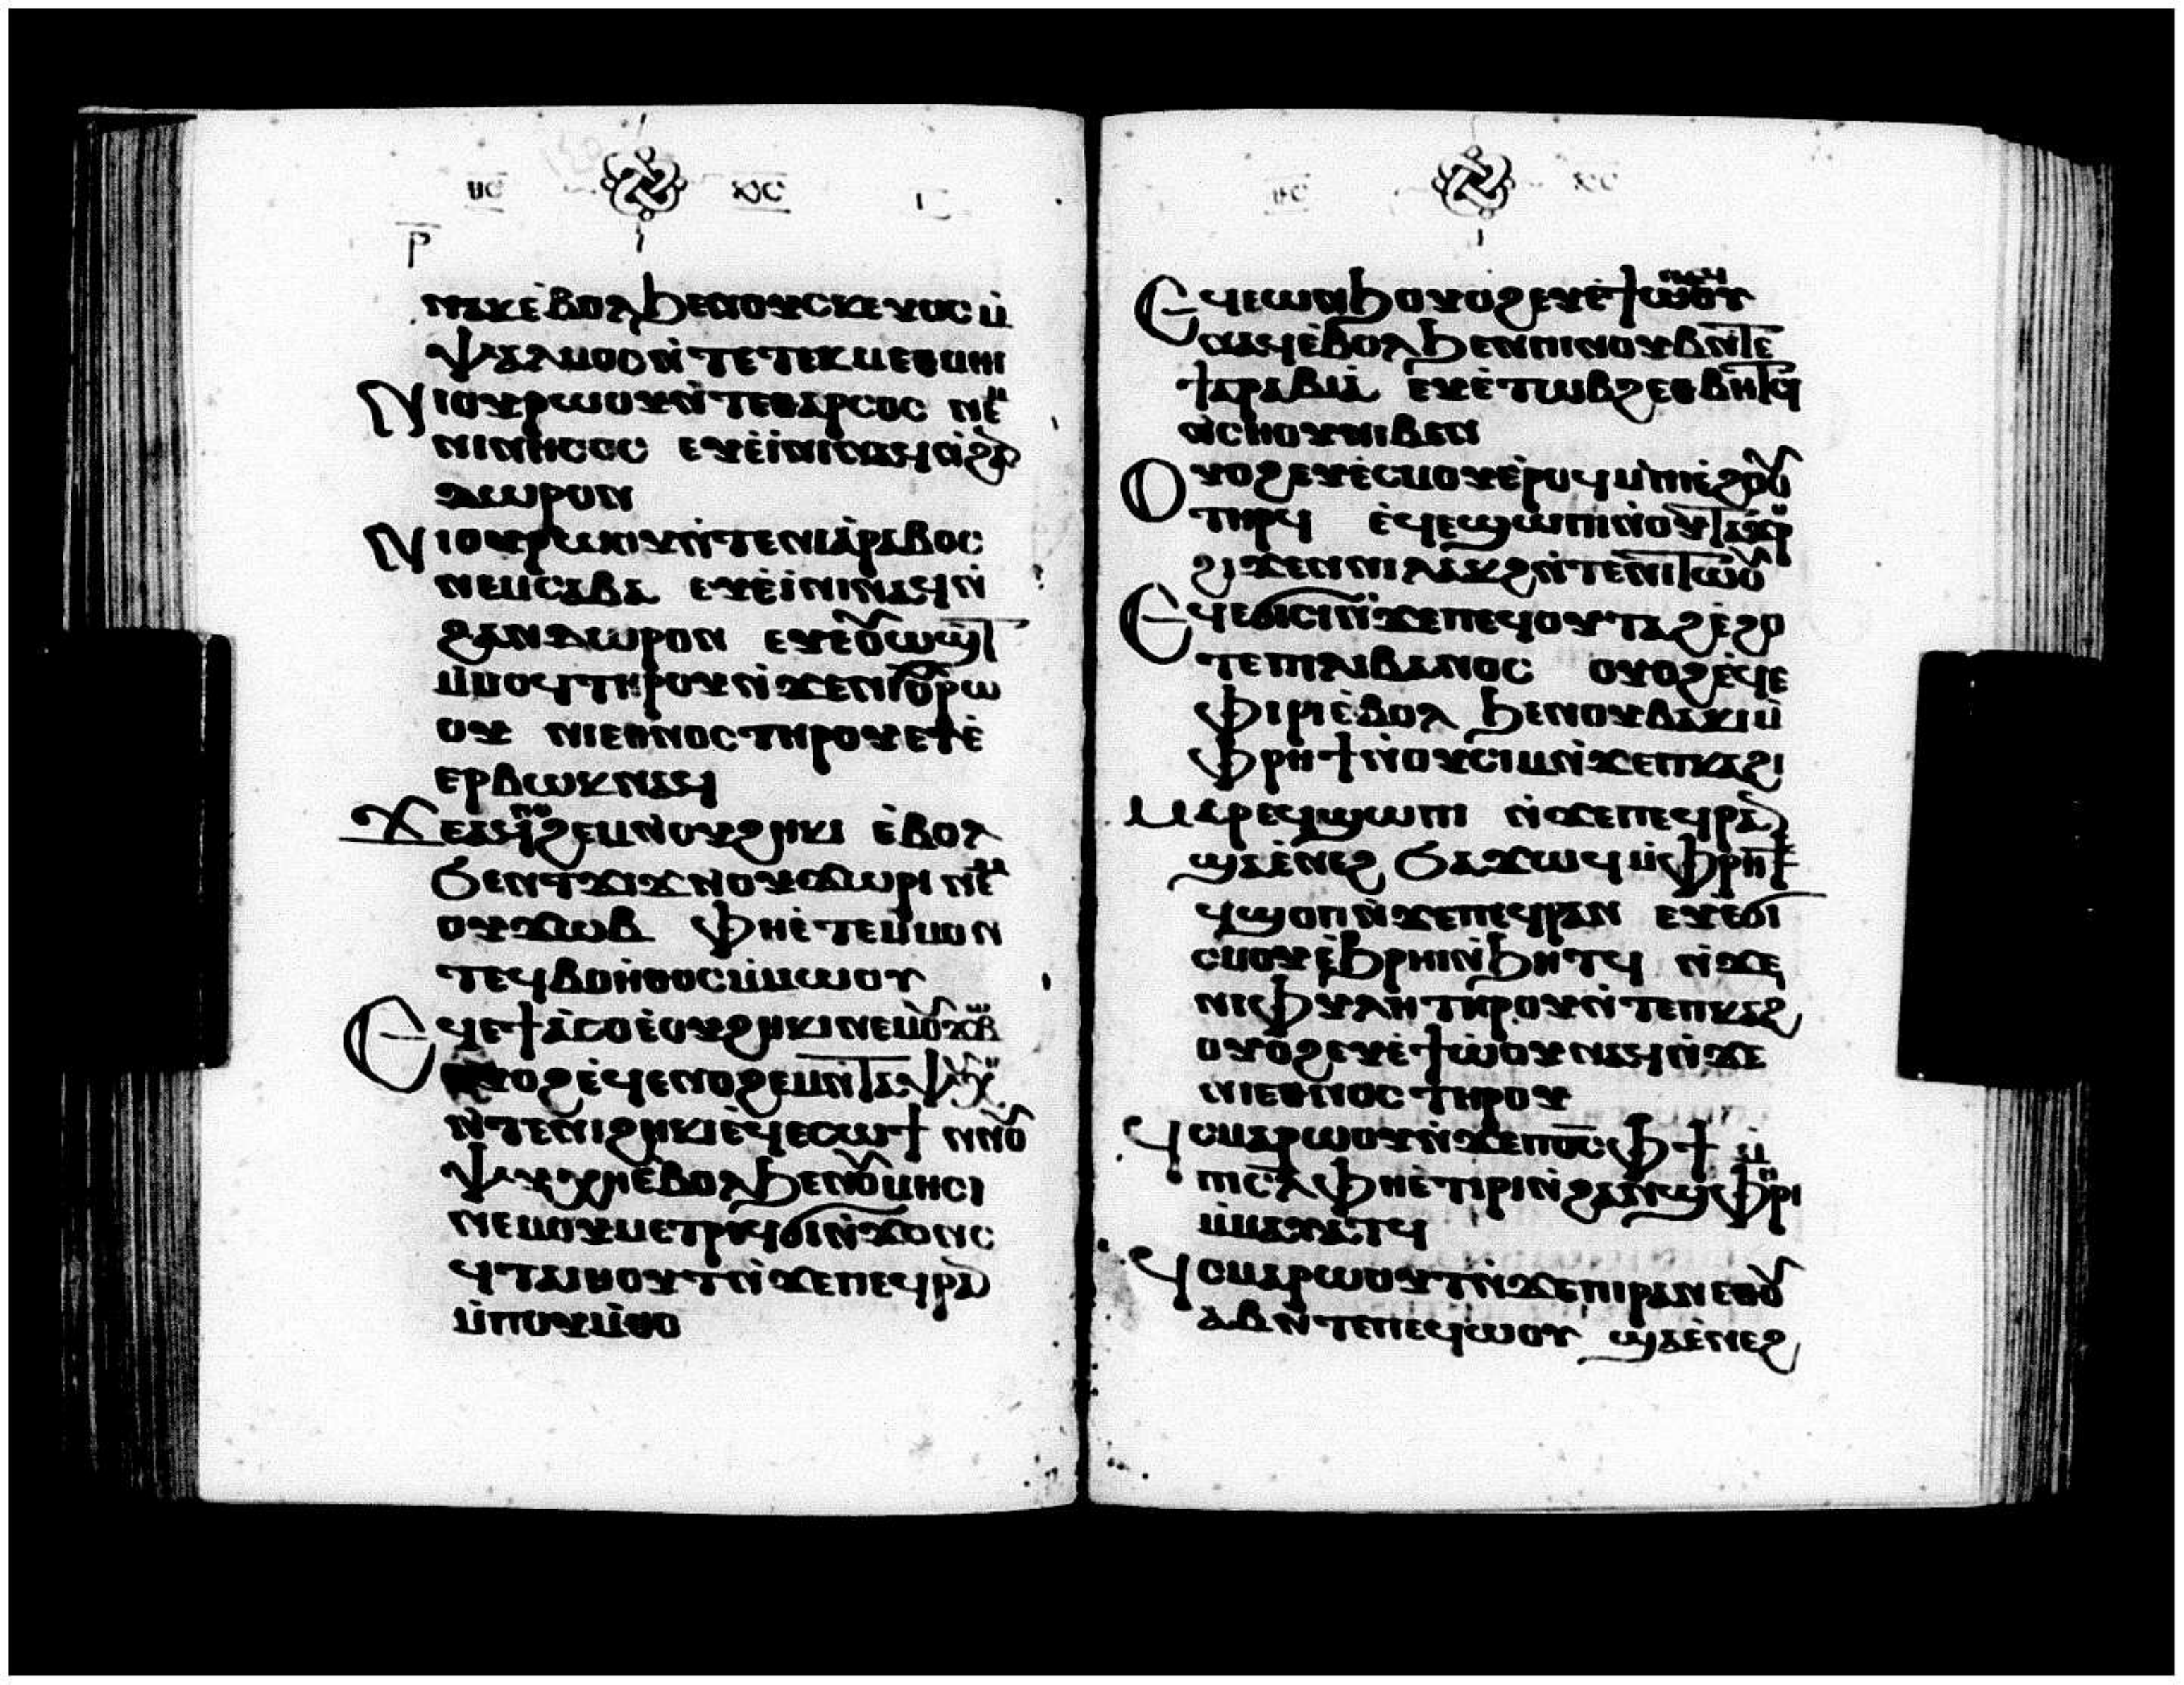 ⲓⲏⲥ ⲭⲥ
ⲣ̅
ⲛⲁⲕ ⲉ̀ⲃⲟⲗ ϧⲉⲛ ⲟⲩⲥⲕⲉⲩⲟⲥ ⲙ̀
ⲯⲁⲗⲙⲟⲥ ⲛ̀ⲧⲉ ⲧⲉⲕⲙⲉⲑⲙⲏⲓ
Ⲛⲓⲟⲩⲣⲱⲟⲩ ⲛ̀ⲧⲉ ⲑⲁⲣⲥⲟⲥ ⲛⲉⲙ
ⲛⲓⲛⲏⲥⲟⲥ ⲉⲩⲉ̀ⲓ̀ⲛⲓ ⲛⲁϥ ⲛ̀ϩⲁⲛ
ⲇⲱⲣⲟⲛ
Ⲛⲓⲟⲩⲣⲱⲟⲩ ⲛ̀ⲧⲉ ⲛⲓⲁ̀ⲣⲁⲃⲟⲥ
ⲛⲉⲙ ⲥⲁⲃⲁ ⲉⲩⲉ̀ⲓ̀ⲛⲓ ⲛⲁϥ ⲛ̀
ϩⲁⲛⲇⲱⲣⲟⲛ ⲉⲩⲉⲟⲩⲱϣⲧ
ⲙ̀ⲙⲟϥ ⲧⲏⲣⲟⲩ ⲛ̀ϫⲉ ⲛⲓⲟⲩⲣⲱ
ⲟⲩ ⲛⲓⲉⲑⲛⲟⲥ ⲧⲏⲣⲟⲩ ⲉⲩⲉ̀
ⲉⲣⲃⲱⲕ ⲛⲁϥ
Ϫⲉ ⲁϥⲛⲟϩⲉⲙ ⲛ̀ⲟⲩϩⲏⲕⲓ ⲉ̀ⲃⲟⲗ
ϧⲉⲛ ⲧϫⲓϫ ⲛⲟⲩϫⲱⲣⲓ ⲛⲉⲙ
ⲟⲩϫⲱⲃ ⲫⲏ ⲉ̀ⲧⲉ ⲙ̀ⲙⲟⲛ
ⲧⲉϥⲃⲟⲏ̀ⲑⲟⲥ ⲙ̀ⲙⲱⲟⲩ
Ⲉϥⲉϯⲁ̀ⲥⲟ ⲉ̀ⲟⲩϩⲏⲕⲓ ⲛⲉⲙ ⲟⲩϫⲱⲃ
ⲟⲩⲟϩ ⲉ̀ϥⲉⲛⲟϩⲉⲙ ⲛ̀ⲧⲁⲯⲩⲭⲏ
ⲛ̀ⲧⲉ ⲛⲓϩⲏⲕⲓ ⲉ̀ϥⲉⲥⲱϯ ⲛⲛⲟⲩ
ⲯⲩⲭⲏ ⲉ̀ⲃⲟⲗ ϧⲉⲛ ⲟⲩⲙⲏⲥⲓ
ⲛⲉⲙ ⲟⲩⲙⲉⲧⲣⲉϥϭⲓⲛ̀ϫⲟⲛⲥ
ϥⲧⲁⲓⲏⲟⲩⲧ ⲛ̀ϫⲉ ⲡⲉϥⲣⲁⲛ
ⲙ̀ⲡⲟⲩⲙ̀ⲑⲟ
ⲓⲏⲥ ⲭⲥ
Ⲉϥⲉⲱⲛϧ ⲟⲩⲟϩ ⲉⲩⲉ̀ϯⲱⲟⲩ
ⲛⲁϥ ⲉ̀ⲃⲟⲗ ϧⲉⲛ ⲡⲓⲛⲟⲩⲃ ⲛ̀ⲧⲉ
ϯⲁⲣⲁⲃⲓⲁ̀ ⲉⲩⲉ̀ⲧⲱⲃϩ ⲉⲑⲃⲏⲧϥ
ⲛ̀ⲥⲏⲟⲩ ⲛⲓⲃⲉⲛ
Ⲟⲩⲟϩ ⲉⲩⲉ̀ⲥⲙⲟⲩ ⲉ̀ⲣⲟϥ ⲙ̀ⲡⲓⲉ̀ϩⲟⲟⲩ
ⲧⲏⲣϥ ⲉ̀ϥⲉϣⲱⲡⲓ ⲛ̀ⲟⲩⲧⲁϫⲣⲟ
ϩⲓϫⲉⲛ ⲛⲓⲗⲁⲕϩ ⲛ̀ⲧⲉ ⲛⲓⲧⲱⲟⲩ
Ⲉϥⲉϭⲓⲥⲓ ⲛ̀ϫⲉ ⲡⲉϥⲟⲩⲧⲁϩ ⲉ̀ϩⲟ
ⲧⲉ ⲡⲓⲗⲓⲃⲁⲛⲟⲥ ⲟⲩⲟϩ ⲉ̀ϥⲉ
ⲫⲓⲣⲓ ⲉ̀ⲃⲟⲗ ϧⲉⲛ ⲟⲩⲃⲁⲕⲓ ⲙ̀
ⲫⲣⲏϯ ⲛ̀ⲟⲩⲥⲓⲙ ⲛ̀ϫⲉ ⲡⲕⲁϩⲓ
Ⲙⲁⲣⲉϥϣⲱⲡⲓ ⲛ̀ϫⲉ ⲡⲉϥⲣⲁⲛ
ϣⲁ ⲉ̀ⲛⲉϩ ϧⲁϫⲱϥ ⲙ̀ⲫⲣⲏ
ϥϣⲟⲡ ⲛ̀ϫⲉ ⲡⲉϥⲣⲁⲛ ⲉⲩⲉϭⲓ
ⲥⲙⲟⲩ ⲉ̀ϧⲣⲏⲓ ⲛ̀ϧⲏⲧϥ ⲛ̀ϫⲉ
ⲛⲓⲫⲩⲗⲏ ⲧⲏⲣⲟⲩ ⲛ̀ⲧⲉ ⲡⲕⲁϩⲓ
ⲟⲩⲟϩ ⲉⲩⲉ̀ϯⲱ̀ⲟⲩ ⲛⲁϥ ⲛ̀ϫⲉ
ⲛⲓⲉⲑⲛⲟⲥ ⲧⲏⲣⲟⲩ
Ϥⲥⲙⲁⲣⲱⲟⲩⲧ ⲛ̀ϫⲉ ⲡⲟ̅ⲥ̅ ⲫϯ ⲙ̀
ⲡⲓⲥ̅ⲗ̅ ⲫⲏ ⲉ̀ⲧⲓⲣⲓ ⲛ̀ϩⲁⲛϣⲫⲏⲣⲓ
ⲙ̀ⲙⲁⲩⲁⲧϥ
Ϥⲥⲙⲁⲣⲱⲟⲩⲧ ⲛ̀ϫⲉ ⲡⲓⲣⲁⲛ ⲉⲑⲟⲩ
ⲁⲃ ⲛ̀ⲧⲉ ⲡⲉϥⲱⲟⲩ ϣⲁ ⲉ̀ⲛⲉϩ